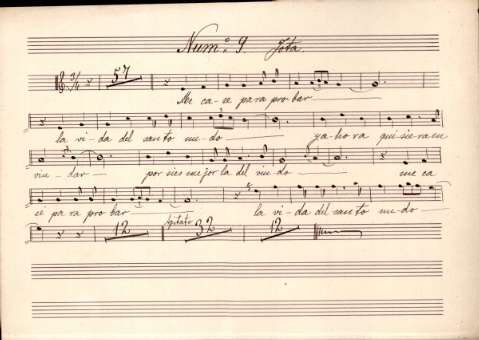 Num.º 9 Jota.
3/4 57
Me ca-se para probar
la vi-da del santo nu-do ya-hora qui-sie-ra en
viu-dar por si es mejor la del viu-do me ca
sé pa ra pro bar la vi-da del san-to nu-do
12 Agitato 32 12